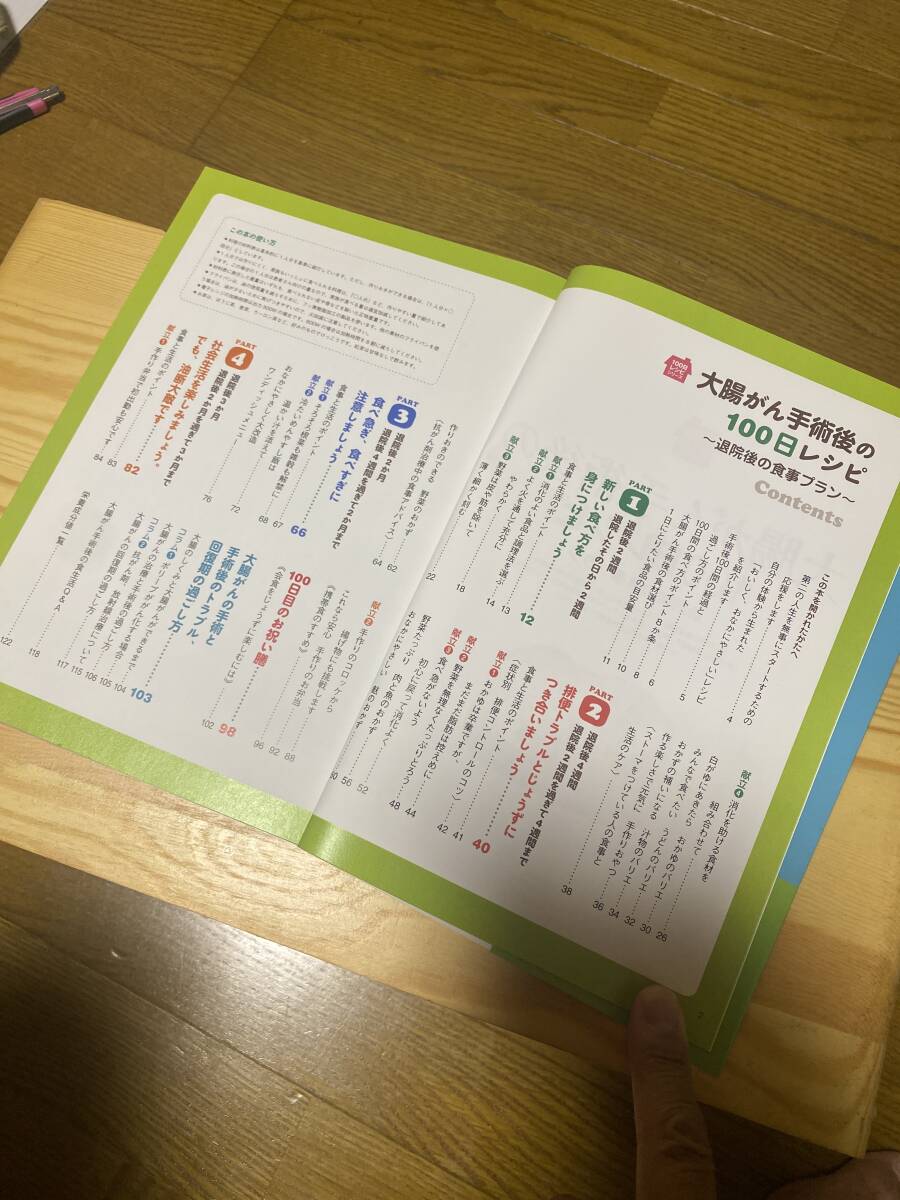 100日
レシピ
シリーズ
大腸がん手術後の
100日レシピ
～退院後の食事プラン～
Contents
この本を開かれたかたへ
第二の人生を無事にスタートするための
応援をします
自分の体験から生まれた
「おいしくて、おなかにやさしい」レシピ
を紹介します……4
手術後100日間の経過と
100日間の過ごし方のポイント……5
大腸がん手術後の食べ方のポイント8か条……6
大腸がん手術後の食材選び……8
1日にとりたい食品の目安量……10
11
PART
1
退院後2週間
退院したその日から2週間
新しい食べ方を
身につけましょう……12
食事と生活のポイント
献立❶ 消化のよい食品と調理法を選ぶ……13
献立❷ よく火を通して充分に
やわらかく……14
献立❸ 野菜は皮や筋を除いて
薄く細かく刻む……18
22
献立❹ 消化を助ける食材を
組み合わせて……26
白がゆにあきたら おかゆのバリエ……30
みんなで食べたい うどんのバリエ……32
おかずの補いになる 汁物のバリエ……34
作る楽しさで元気に 手作りおやつ……36
《ストーマをつけている人の食事と
生活のケア》……38
PART
2
退院後4週間
退院後2週間を過ぎて4週間まで
排便トラブルとじょうずに
つき合いましょう……40
食事と生活のポイント
《症状別 排便コントロールのコツ》……41
献立❶ おかゆは卒業ですが、
まだまだ脂肪は控えめに……42
献立❷ 野菜を無理なくたっぷりとろう……44
献立❸ 食べ急がないよう
初心に戻って消化よく……48
野菜たっぷり 肉と魚のおかず……52
おなかにやさしい 麩のおかず……56
作りおきのできる 野菜のおかず……62
《抗がん剤治療中の食事アドバイス》……64
PART
3
退院後2か月
退院後4週間を過ぎて2か月まで
食べ急ぎ、食べすぎに
注意しましょう……66
食事と生活のポイント……67
献立❶ そろそろ根菜も雑穀も解禁に……68
献立❷ 冷たいめんやすし飯は
温かい汁を添えて……72
おなかにやさしく大改造
ワンディッシュメニュー……76
PART
4
退院後3か月
退院後2か月を過ぎて3か月まで
社会生活を楽しみましょう。
でも、油断大敵です……82
食事と生活のポイント……83
献立❶ 手作り弁当で初出勤も安心です……84
献立❷ 手作りのコロッケから
揚げ物にも挑戦します……88
これなら安心 手作りのお弁当……92
《携帯食のすすめ》……96
100日目のお祝い膳……98
《会食をじょうずに楽しむには》……102
大腸がんの手術と
手術後のトラブル、
回復期の過ごし方……103
大腸のしくみと大腸がんができるまで……104
コラム❶ ポリープががん化する場合……105
大腸がんの治療と手術後の過ごし方……106
コラム❷ 抗がん剤、放射線治療について……115
大腸がんの回復期の過ごし方……117
大腸がん手術後の食生活Q＆A……118
栄養成分値一覧……122
この本の使い方
2